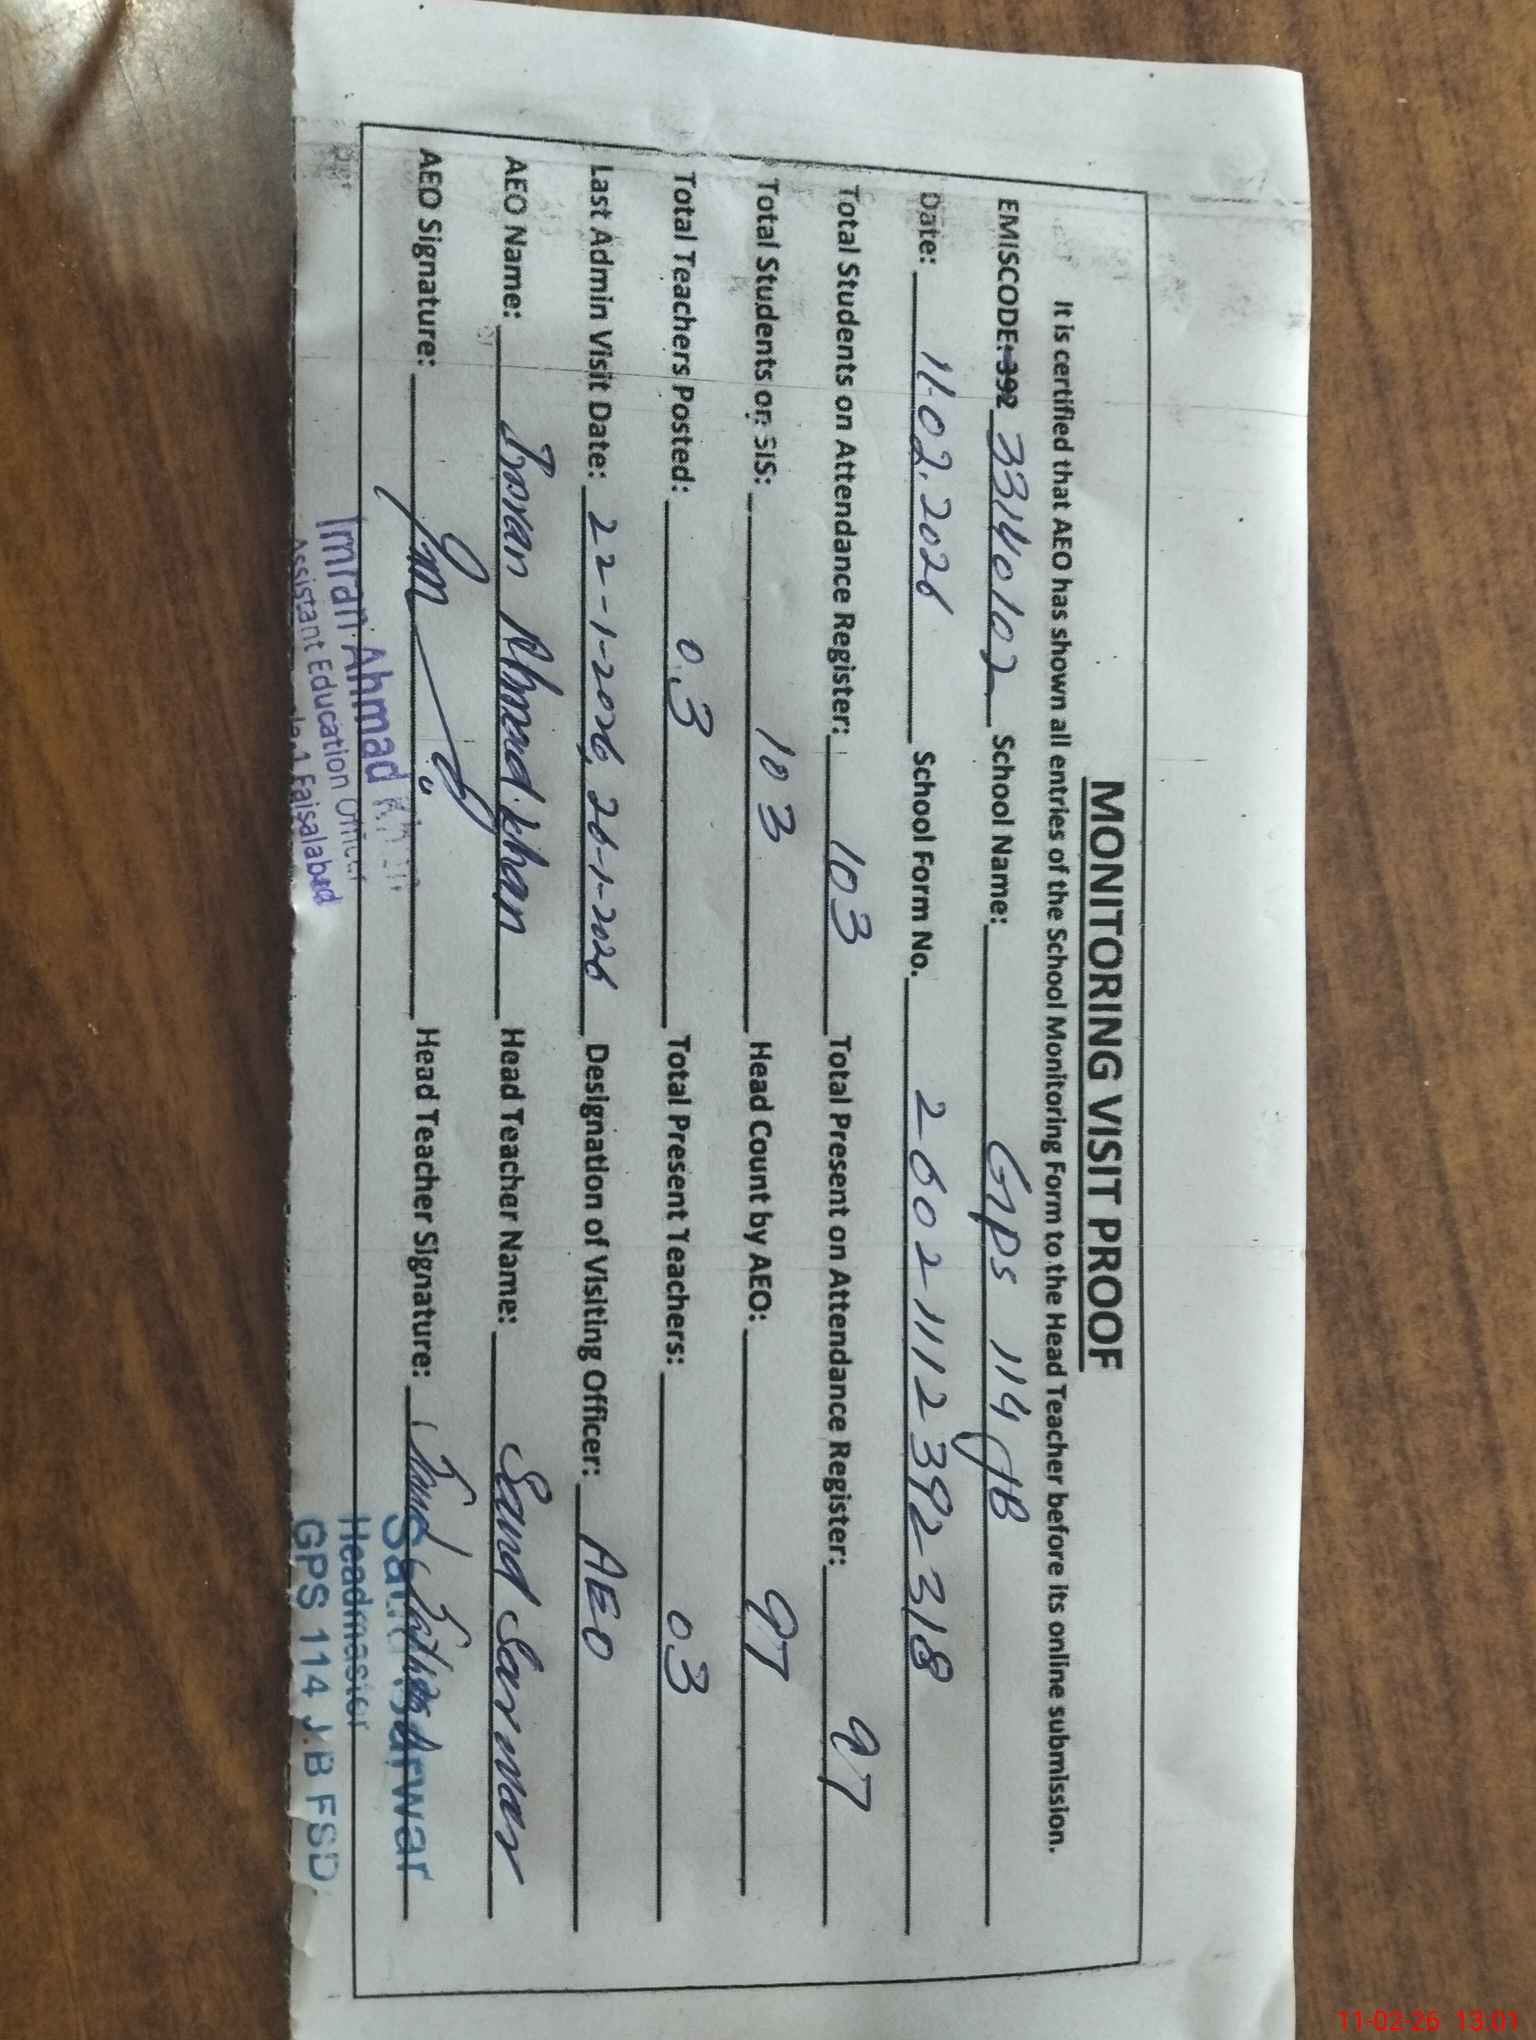 MONITORING VISIT PROOF
It is certified that AEO has shown all entries of the School Monitoring Form to the Head Teacher before its online submission.
EMISCODE: 392 33140102 School Name: GPS 114 JB
Date: 11.02.2026 School Form No. 26021112392318
Total Students on Attendance Register: 103 Total Present on Attendance Register: 97
Total Students on SIS: 103 Head Count by AEO: 97
Total Teachers Posted: 03 Total Present Teachers: 03
Last Admin Visit Date: 22-1-2026, 26-1-2026 Designation of Visiting Officer: AEO
AEO Name: Imran Ahmad Khan Head Teacher Name: Saud Sarwar
AEO Signature: Head Teacher Signature:
Imran Ahmad
Assistant Education Officer
Faisalabad
Sarwar
Headmaster
GPS 114 J.B FSD.
11-02-26 13:01